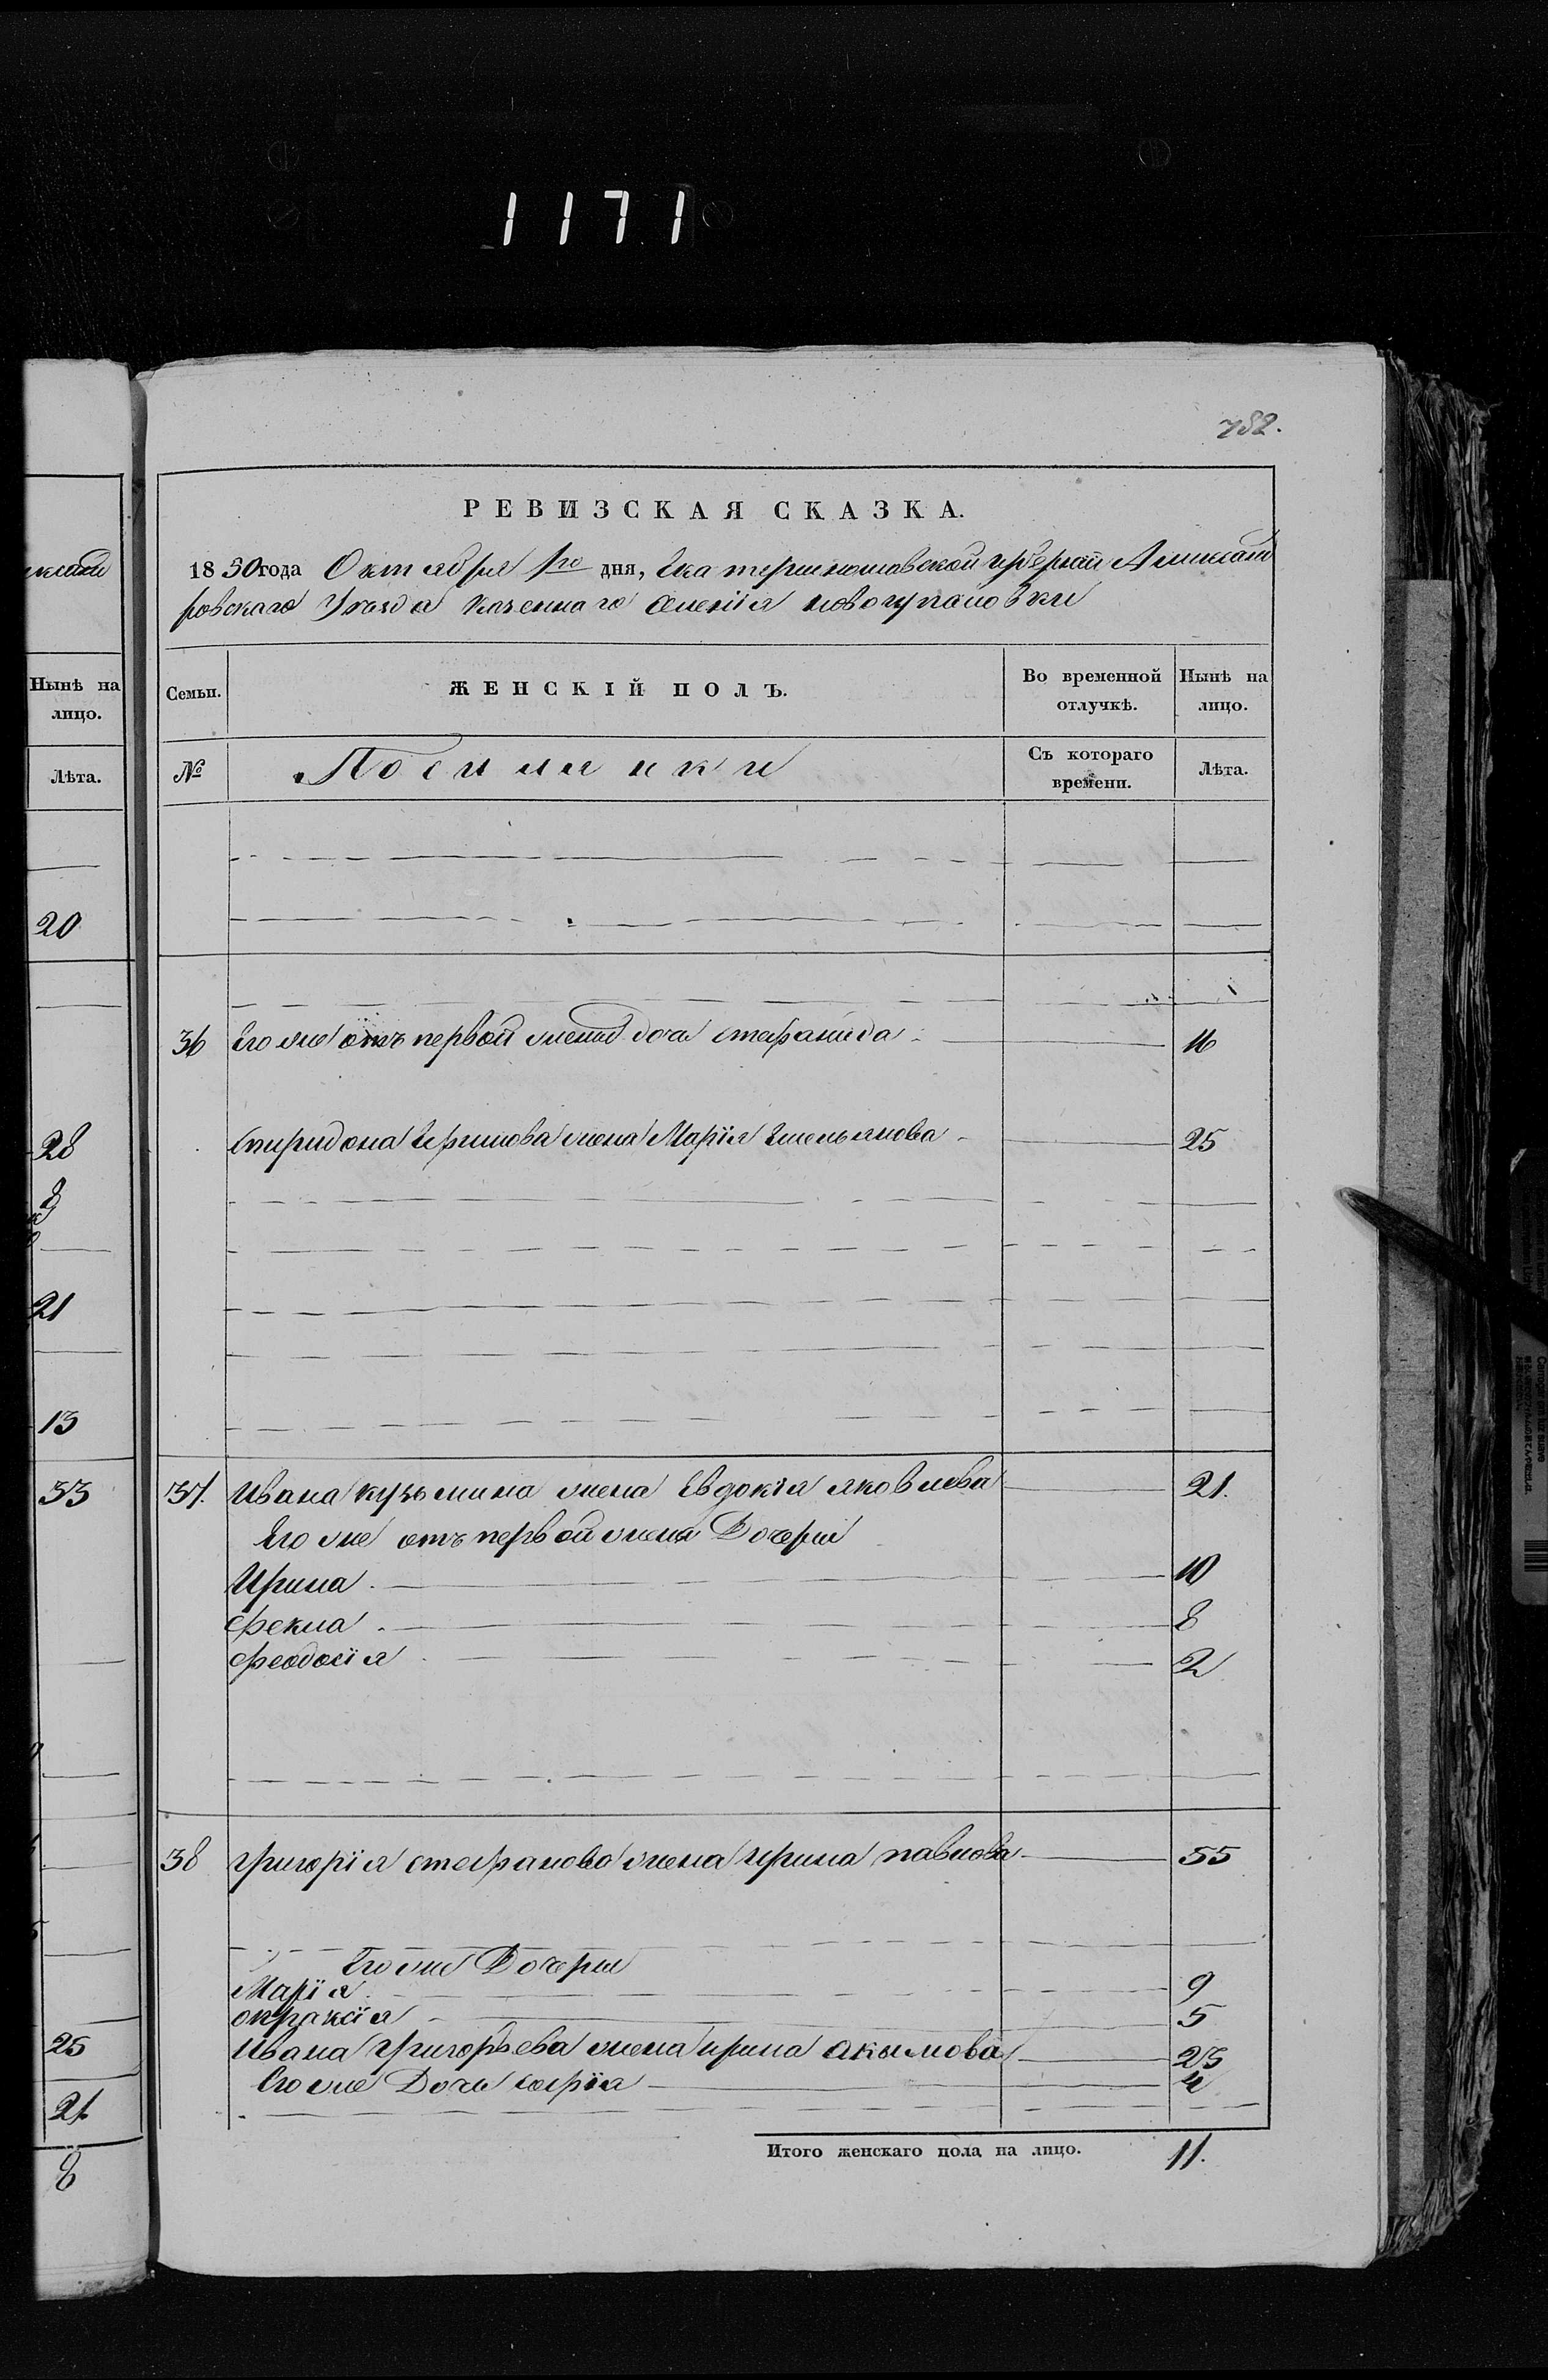 1171
782.
РЕВИЗСКАЯ СКАЗКА.
1850 года Октября 1го дня, Екатеринославской губерніи Аликсанд
ровскаго Уезда Казеннаго селенія новогупаловки
Семьи. ЖЕНСКІЙ ПОЛЪ. Во временной отлучкѣ. Нынѣ на лицо.
№ Съ котораго времени. Лѣта.
36 Его же отъ первой жены дочь стефанида 16
Спиридона Ефимова жена Марія Емельянова 25
37. Ивана кузьмина жена Евдокія яковлева 21.
Его же отъ первой жена Дочери
Ирина 10
фекла 8
феодосія 2
38 григорія стефанова жена ирина павлова 55
Его же Дочери
Марія 9
опраксія 5
Ивана григорьева жена ирина акымова 25
Его же Дочь софія 4
Итого женскаго пола на лицо. 11.
Нынѣ на
лицо.
Лѣта.
20
28
21
13
33
25
21
8